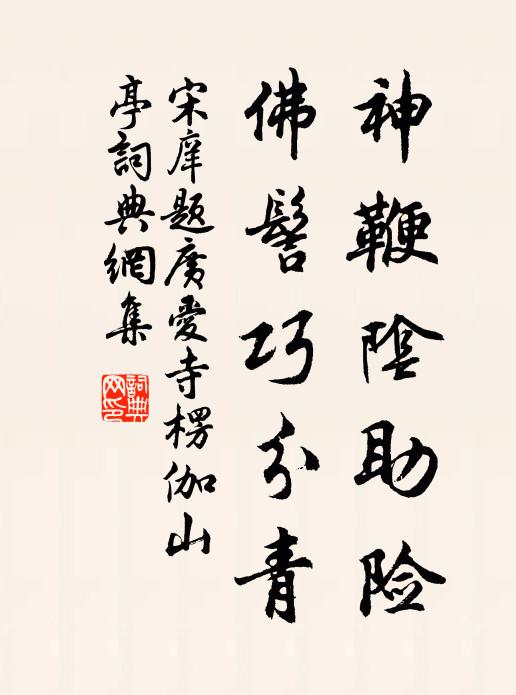 神鞭陰助险
佛髻巧分青
宋庠题广爱寺楞伽山
亭詞典網集
詞典
网印